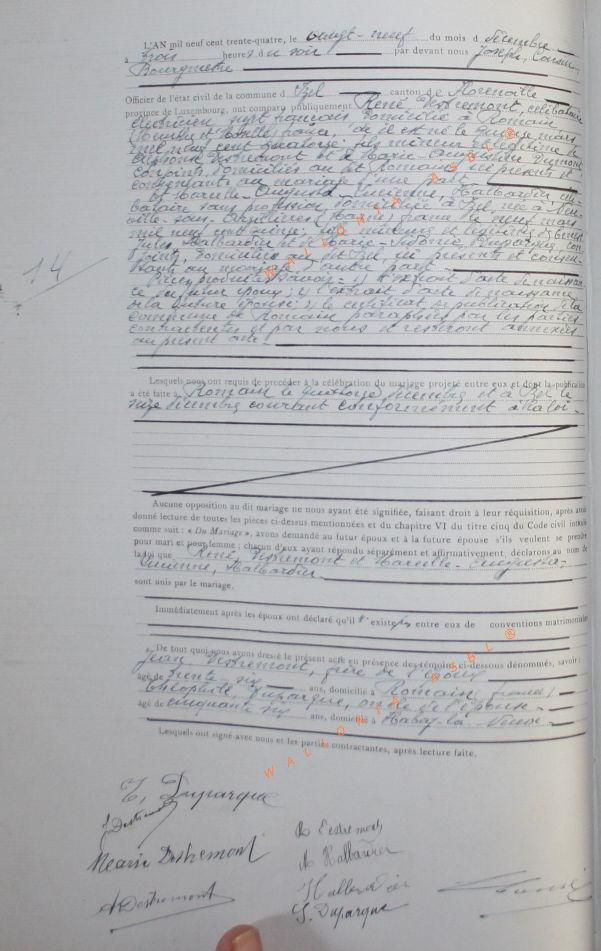 L'AN mil neuf cent trente-quatre, le vingt-neuf du mois d décembre
à trois heures d u soir par devant nous Joseph,
Bourgmestre
Officier de l'état civil de la commune d Izel canton de Florenville
province de Luxembourg, ont comparu publiquement René Destremont, célibataire
électricien, sujet français domicilié à Romain
Meurthe et Moselle france, où il est né le quinze mars
mil neuf cent quatorze; fils mineur et légitime de
Alphonse Destremont et de Marie Dumont
conjoints, domiciliés au dit Romain, ici présents et
consentants au mariage d'une part.
Et Marcelle-Augusta-Lucienne, Halbardier, céli-
bataire sans profession domiciliée à Izel née à Neu-
ville-sous- france le neuf mars
mil neuf cent quinze; fille mineure et légitime de
Jules, Halbardier et de Marie-Sidonie, Duparque, con-
joints, domiciliés au dit Izel, ici présents et consen-
tants au mariage d'autre part.
Pièces produites Savoir: 1) l'extrait d'acte de naissan-
ce du futur époux; 2) extrait d'acte de naissance
de la future épouse; 3) le certificat de publication de la
commune de Romain paraphés par les parties
contractantes et par nous et resteront annexées
au présent acte.
14
Lesquels nous ont requis de procéder à la célébration du mariage projeté entre eux et dont la publication
a été faite à Romain le quatorze décembre et à Izel le
seize décembre courant conformément à la loi.
Aucune opposition au dit mariage ne nous ayant été signifiée, faisant droit à leur réquisition, après avoir
donné lecture de toutes les pièces ci-dessus mentionnées et du chapitre VI du titre cinq du Code civil intitulé
comme suit : « Du Mariage », avons demandé au futur époux et à la future épouse s'ils veulent se prendre
pour mari et pour femme : chacun d'eux ayant répondu séparément et affirmativement, déclarons au nom de
la loi que René, Destremont et Marcelle-Augusta-
Lucienne, Halbardier
sont unis par le mariage.
Immédiatement après les époux ont déclaré qu'il n' existe pas entre eux de conventions matrimoniales
De tout quoi nous ayons dressé le présent acte en présence des témoins ci-dessous dénommés, savoir :
Jean, Destremont, frère de l'époux
âgé de trente six ans, domicilié à Romain, france)
Théophile Duparque, oncle de l'épouse
âgé de cinquante six ans, domicilié à Habay-la-Neuve
Lesquels ont signé avec nous et les parties contractantes, après lecture faite.
T, Duparque
J Destremont
R Destremont
Marie Destremont
A Halbardier
A Destremont
Halbardier
S. Duparque
WALLONIA ASBL ®
WALLONIA ASBL ®